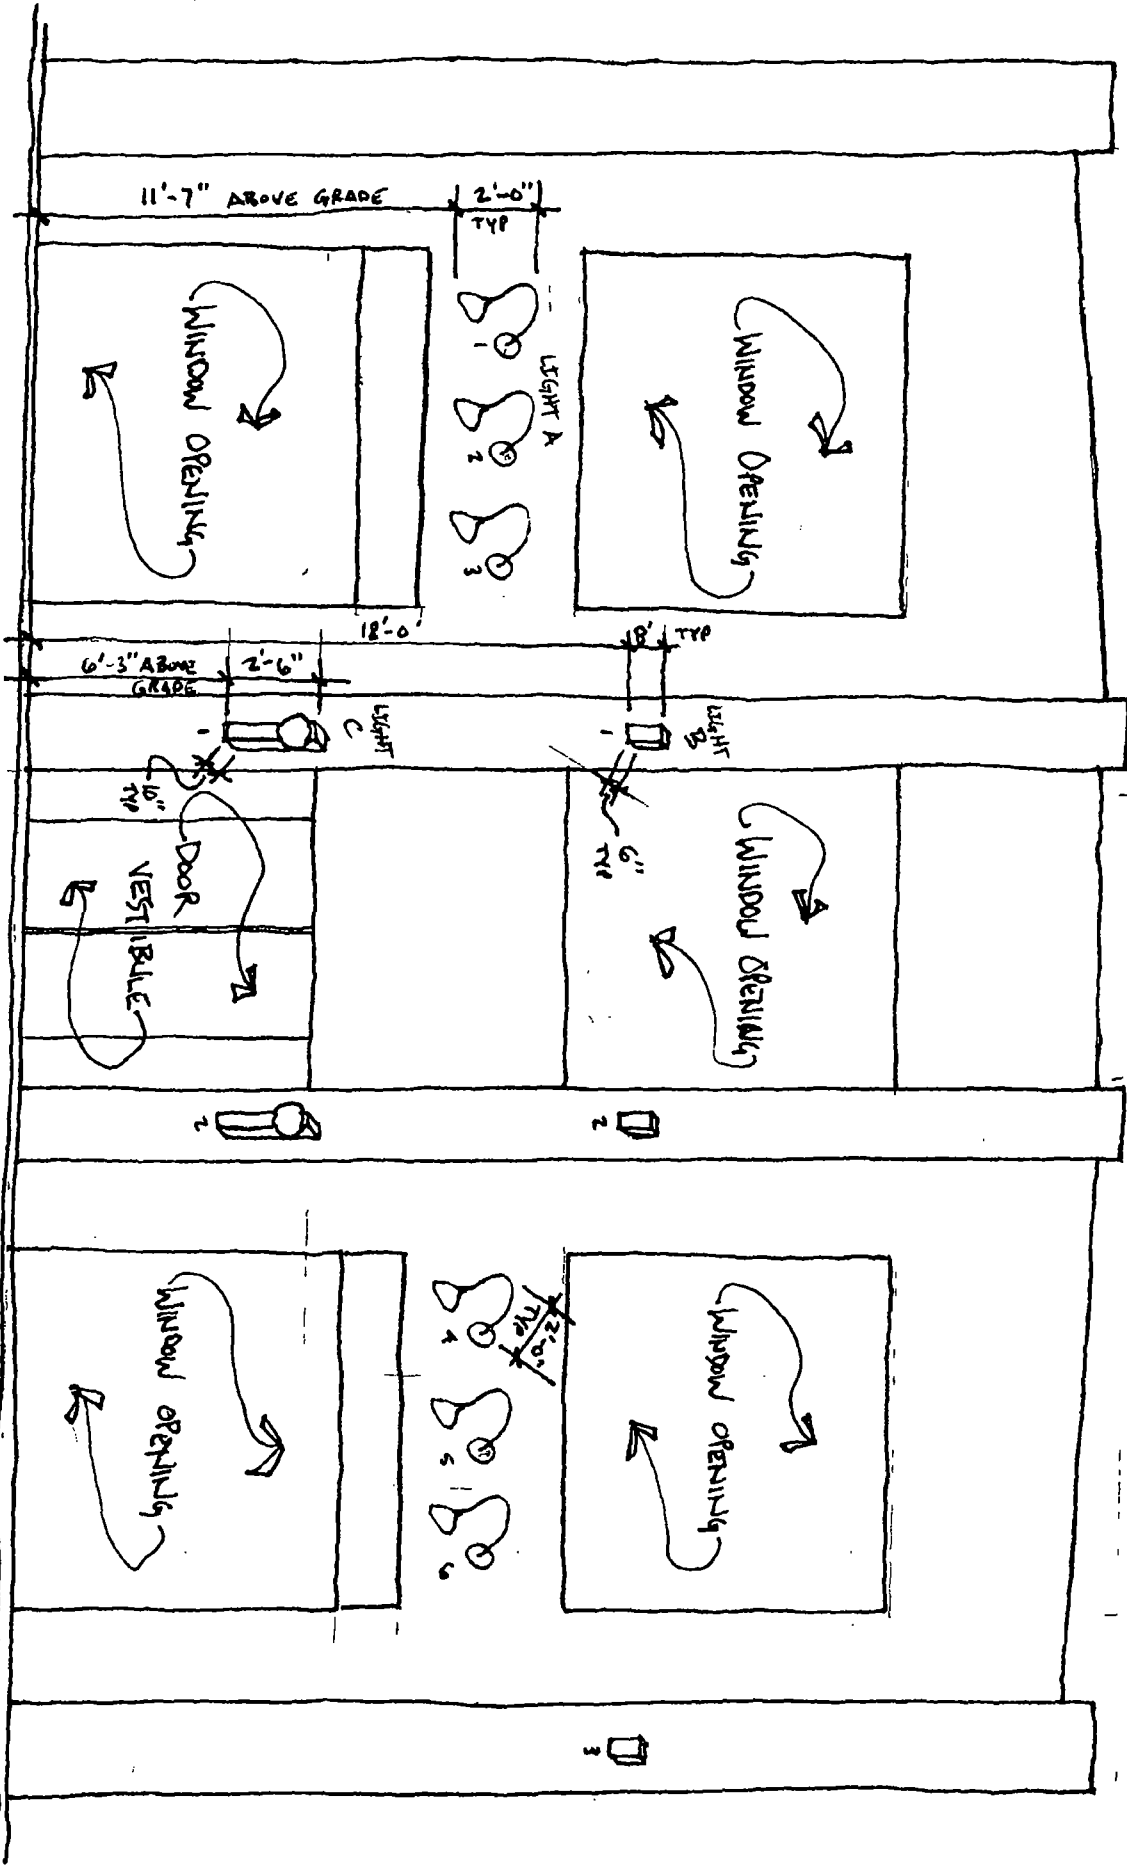 11'-7" ABOVE GRADE
2'-0"
TYP
WINDOW OPENING
LIGHT A
1
2
3
WINDOW OPENING
18'-0'
8'
TYP
6'-3" ABOVE
GRADE
2'-6"
LIGHT
C
1
LIGHT
B
1
10"
TYP
6"
TYP
DOOR
VESTIBULE
WINDOW OPENING
2
2
WINDOW OPENING
4
5
6
2'-0"
TYP
WINDOW OPENING
3